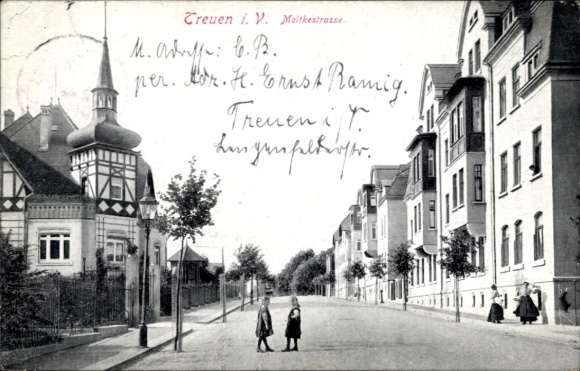 Treuen i. V. Moltkestrasse.
M. Adresse: E. B.
per. Adr. H. Ernst Ramig.
Treuen i/V.
Lengenfelderstr.